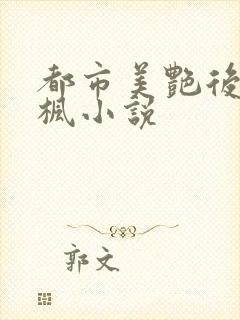 都市美艷後
楓小說
郭文